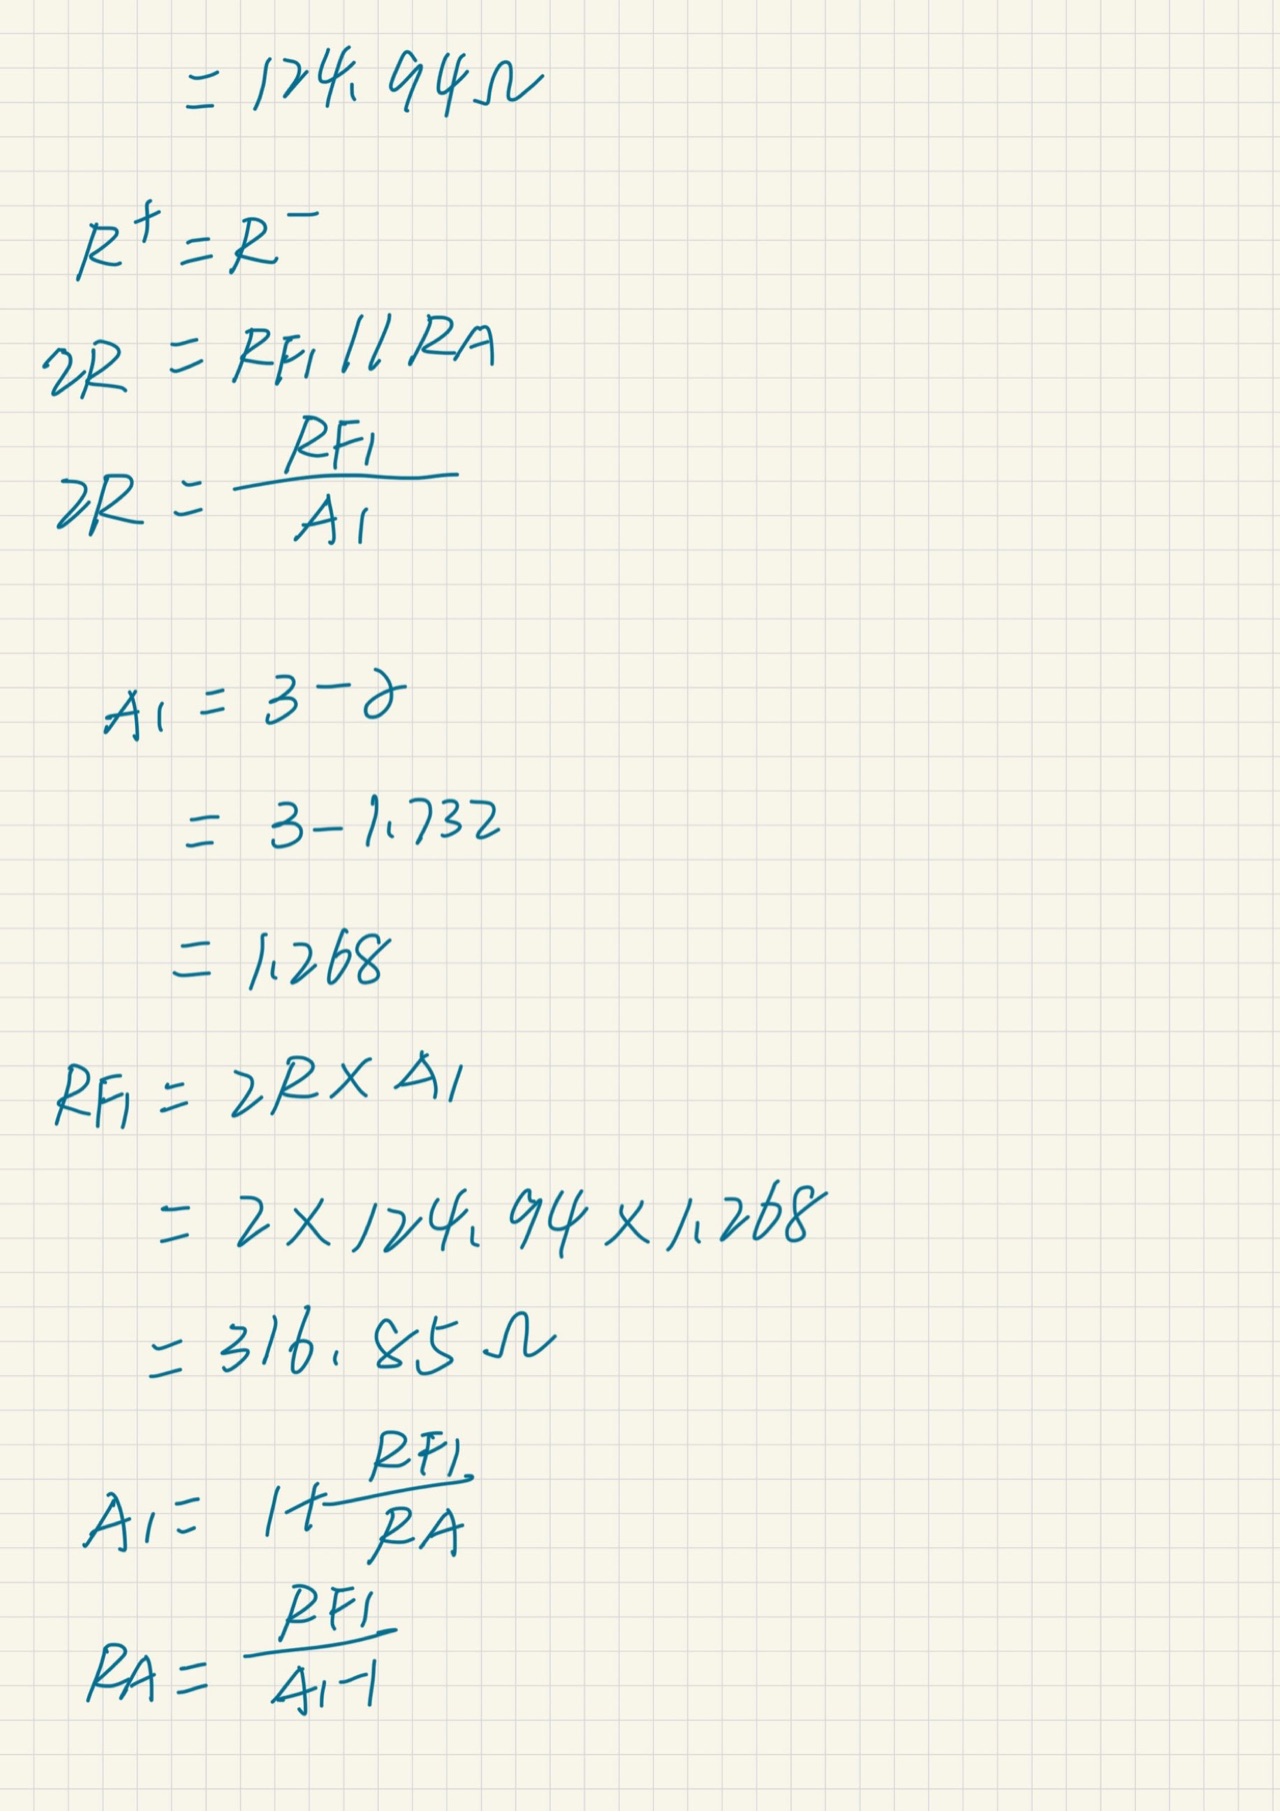 = 124.94Ω
R⁺ = R⁻
2R = RF1 // RA
2R = RF1 / A1
A1 = 3 - α
= 3 - 1.732
= 1.268
RF1 = 2R × A1
= 2 × 124.94 × 1.268
= 316.85 Ω
A1 = 1 + RF1 / RA
RA = RF1 / A1-1